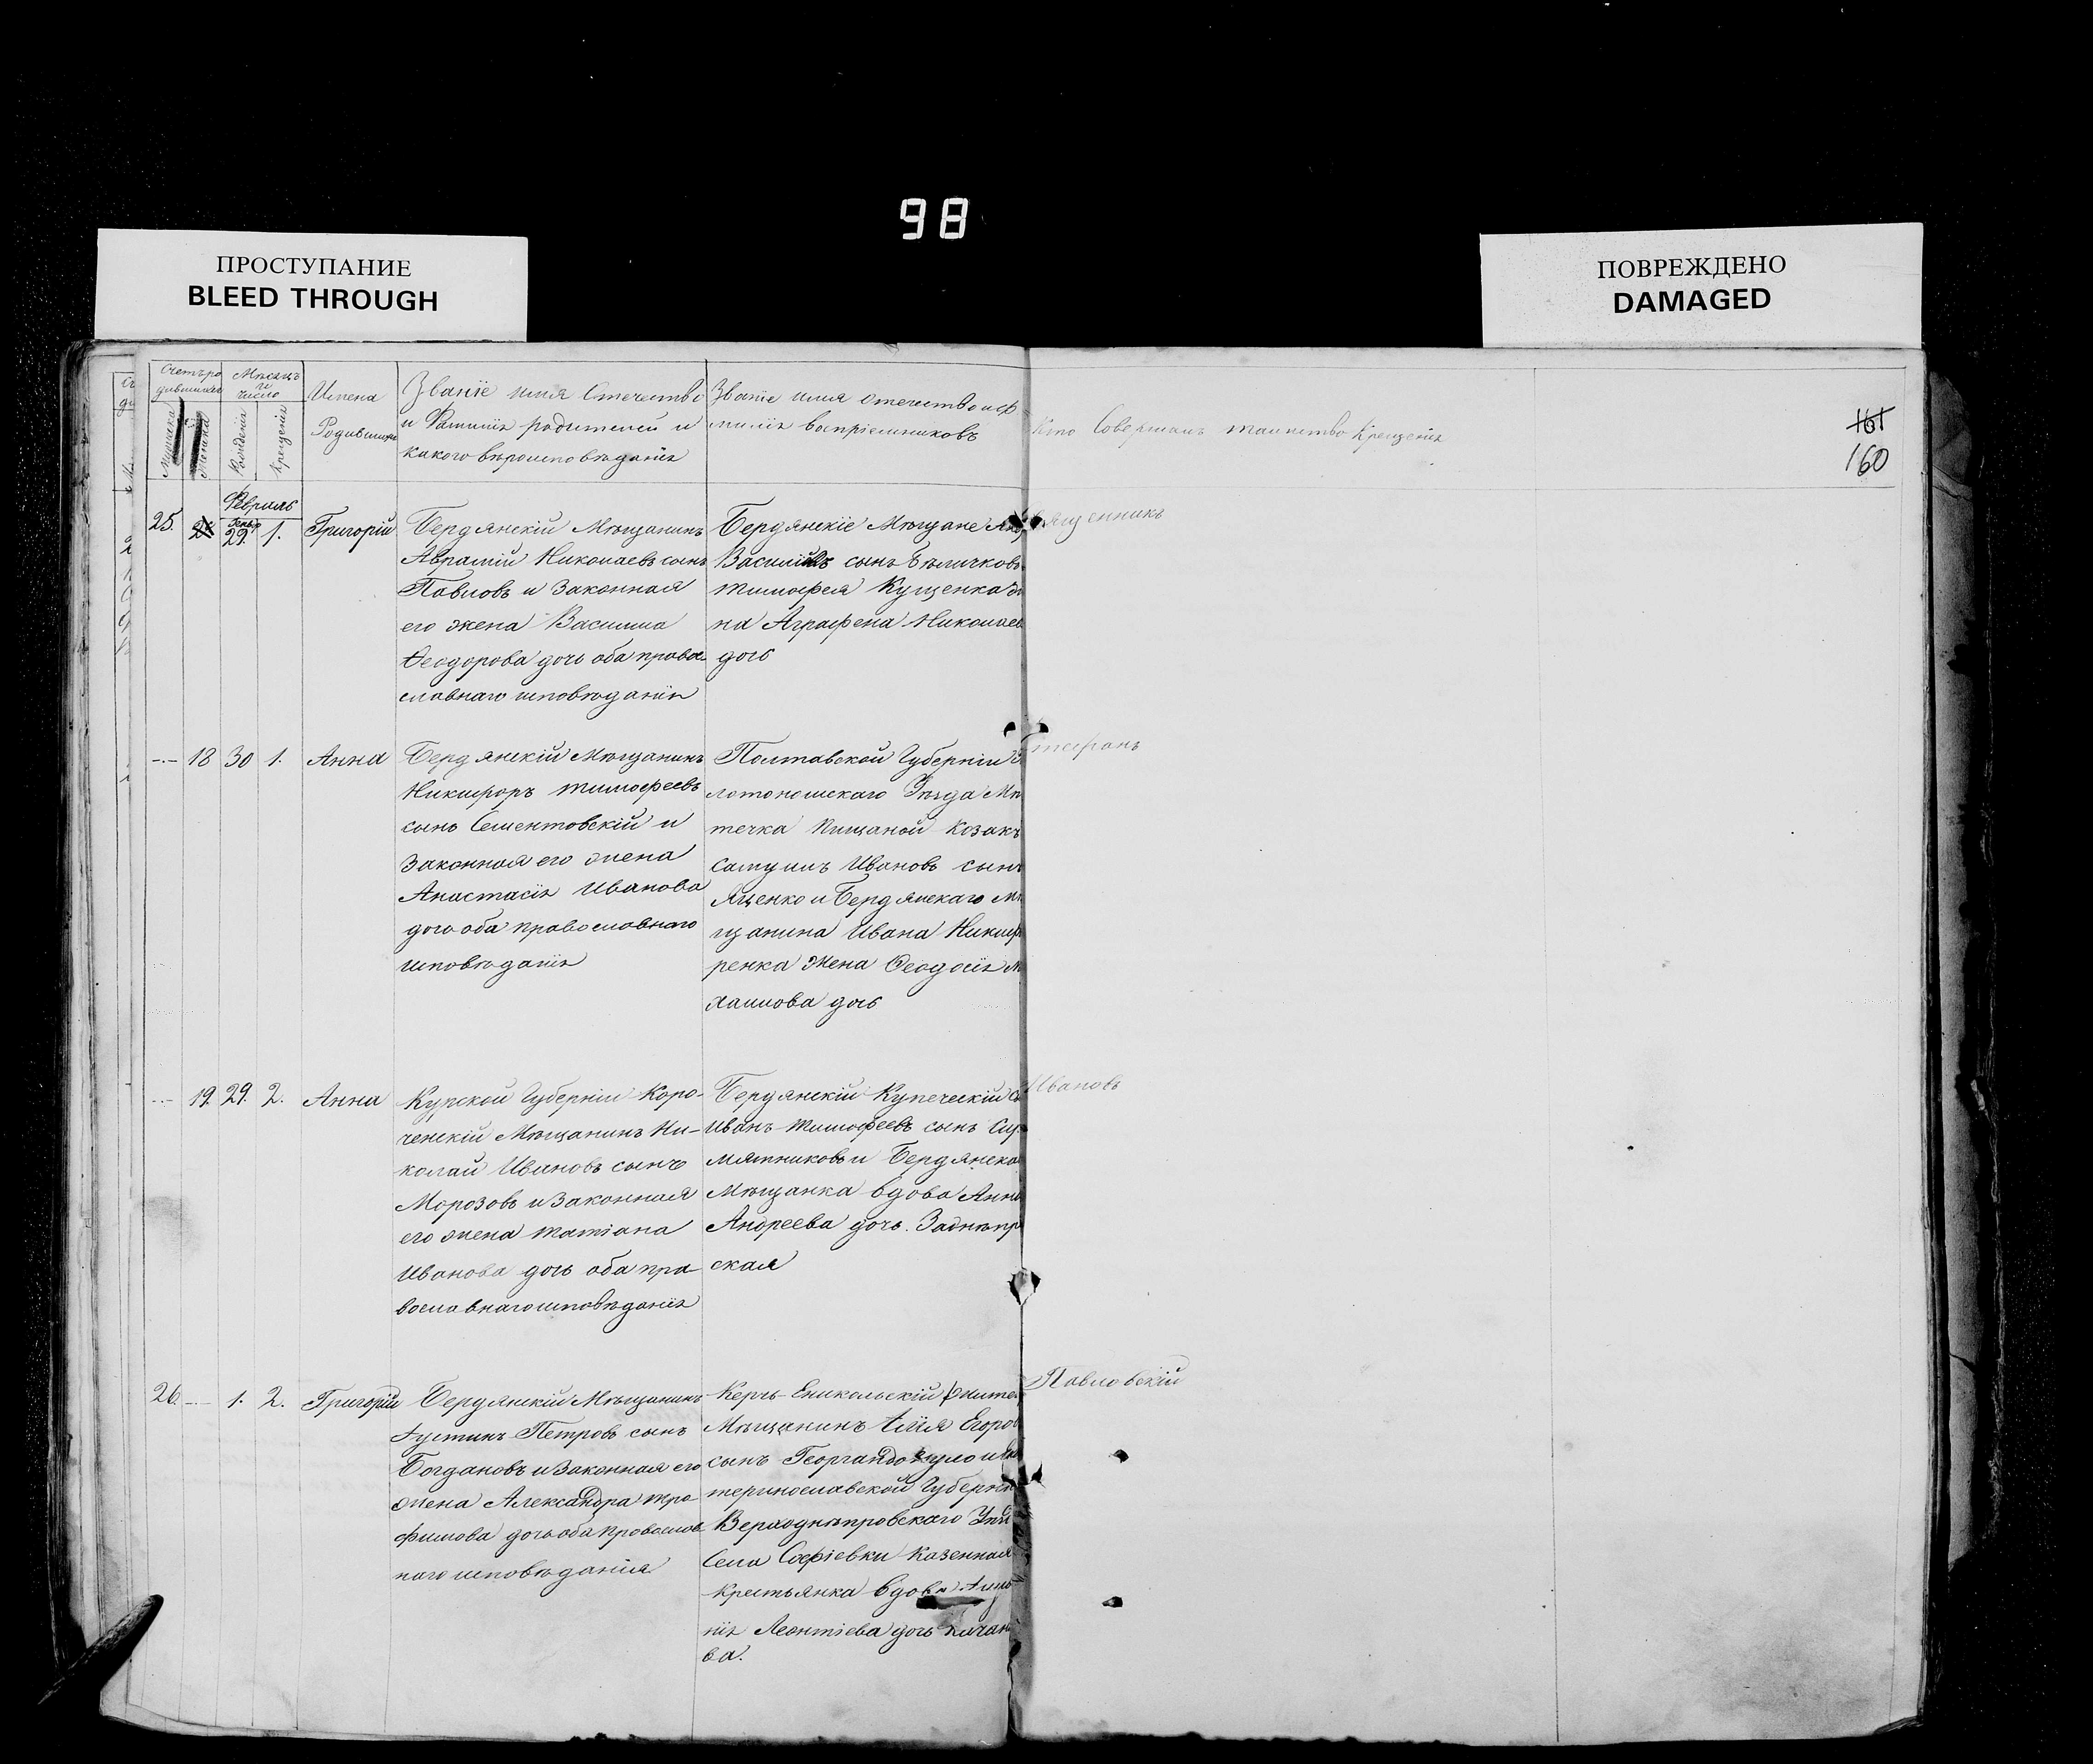 98
ПРОСТУПАНИЕ
BLEED THROUGH
ПОВРЕЖДЕНО
DAMAGED
161
160
Счетъ ро
дившихся
Мужска
Женска
Мѣсяцъ
и
число
Рожденія
Крещенія
Имена
Родившихъ
Званіе имя Отечество
и Фамилія родителей и
какого вѣроисповѣданія
Званіе имя отечество и ф
милія воспріемниковъ
Кто Совершалъ таинство Крещенія
Февраль
25. 29. 1. Григорій
Бердянскій Мѣщанинъ
Аврамій Николаевъ сынъ
Павловъ и Законная
его жена Василиса
Ѳеодорова дочь оба право-
славнаго исповѣданія
Бердянскіе Мѣщане
сынъ Бѣличковъ
Тимофея Кущенка
на Аграфена Николаев
дочь
священникъ
-.- 18 30 1. Анна
Бердянскій Мѣщанинъ
Никифоръ Тимофеевъ
сынъ Сементовскій и
Законная его жена
Анастасія Иванова
дочь оба православнаго
исповѣданія
Полтавской Губерніи З
лотоношскаго Уѣзда Мѣ
течка Пищаной Козакъ
Самуилъ Ивановъ сынъ
Яценко и Бердянскаго Мѣ
щанина Ивана Никиф
ренка жена Ѳеодосія М
хаилова дочь
Стефанъ
-.- 19. 29. 2. Анна
Курской Губерніи Коро-
ченскій Мѣщанинъ Ни-
колай Ивановъ сынъ
Морозовъ и Законная
его жена Татіана
Иванова дочь оба пра-
вославнаго исповѣданія
Бердянскій Купеческій С
Иванъ Тимофеевъ сынъ Сы
мятниковъ и Бердянска
Мѣщанка вдова Анна
Андреева дочь Заднѣпр
ская
Ивановъ
26. -.- 1. 2. Григорій
Бердянскій Мѣщанинъ
Іустинъ Петровъ сынъ
Богдановъ и Законная его
жена Александра Тро-
фимова дочь оба православ
наго исповѣданія
Керчь-Еникольскій
Мѣщанинъ Илія Егоров
сынъ и Ека
теринославской Губерніи
Верходнѣпровскаго Уѣзд
Села Софіевки Казенная
Крестьянка вдова
нія Леонтіева дочь
ва.
Павловскій